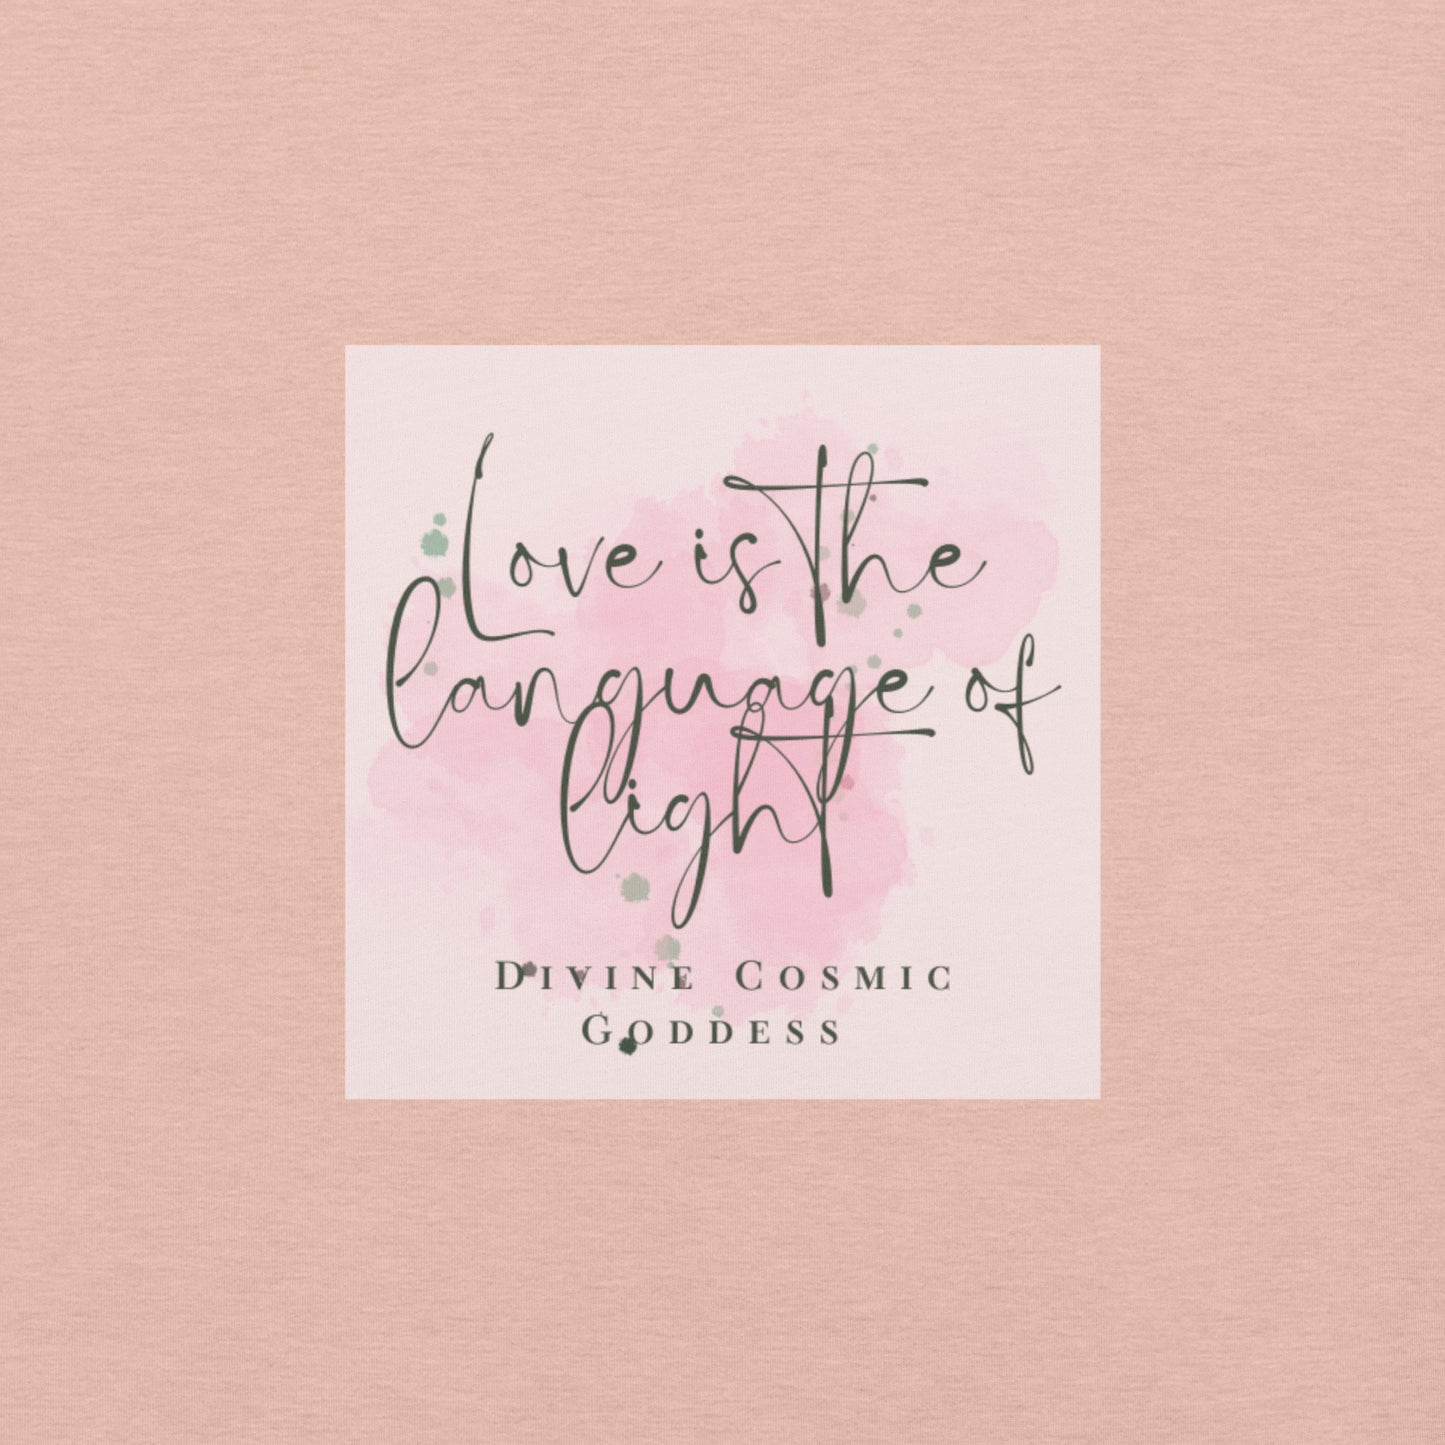 Love is the
language of
light
Divine Cosmic
Goddess